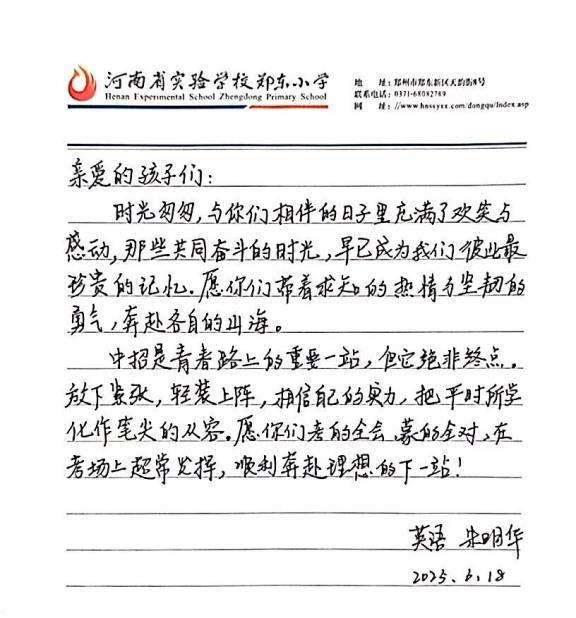 河南省实验学校郑东小学
Henan Experimental School Zhengdong Primary School
地 址：郑州市郑东新区天韵街8号
联系电话：0371-68082789
网 址：//www.hnssyxx.com/dongqu/Index.asp
亲爱的孩子们：
时光匆匆，与你们相伴的日子里充满了欢笑与
感动，那些共同奋斗的时光，早已成为我们彼此最
珍贵的记忆．愿你们带着求知的热情与坚韧的
勇气，奔赴各自的山海。
中招是青春路上的重要一站，但它绝非终点．
放下紧张，轻装上阵，相信自己的实力，把平时所学
化作笔尖的从容。愿你们考的全会、蒙的全对、在
考场上超常发挥，顺利奔赴理想的下一站！
英语 明华
2025.6.18